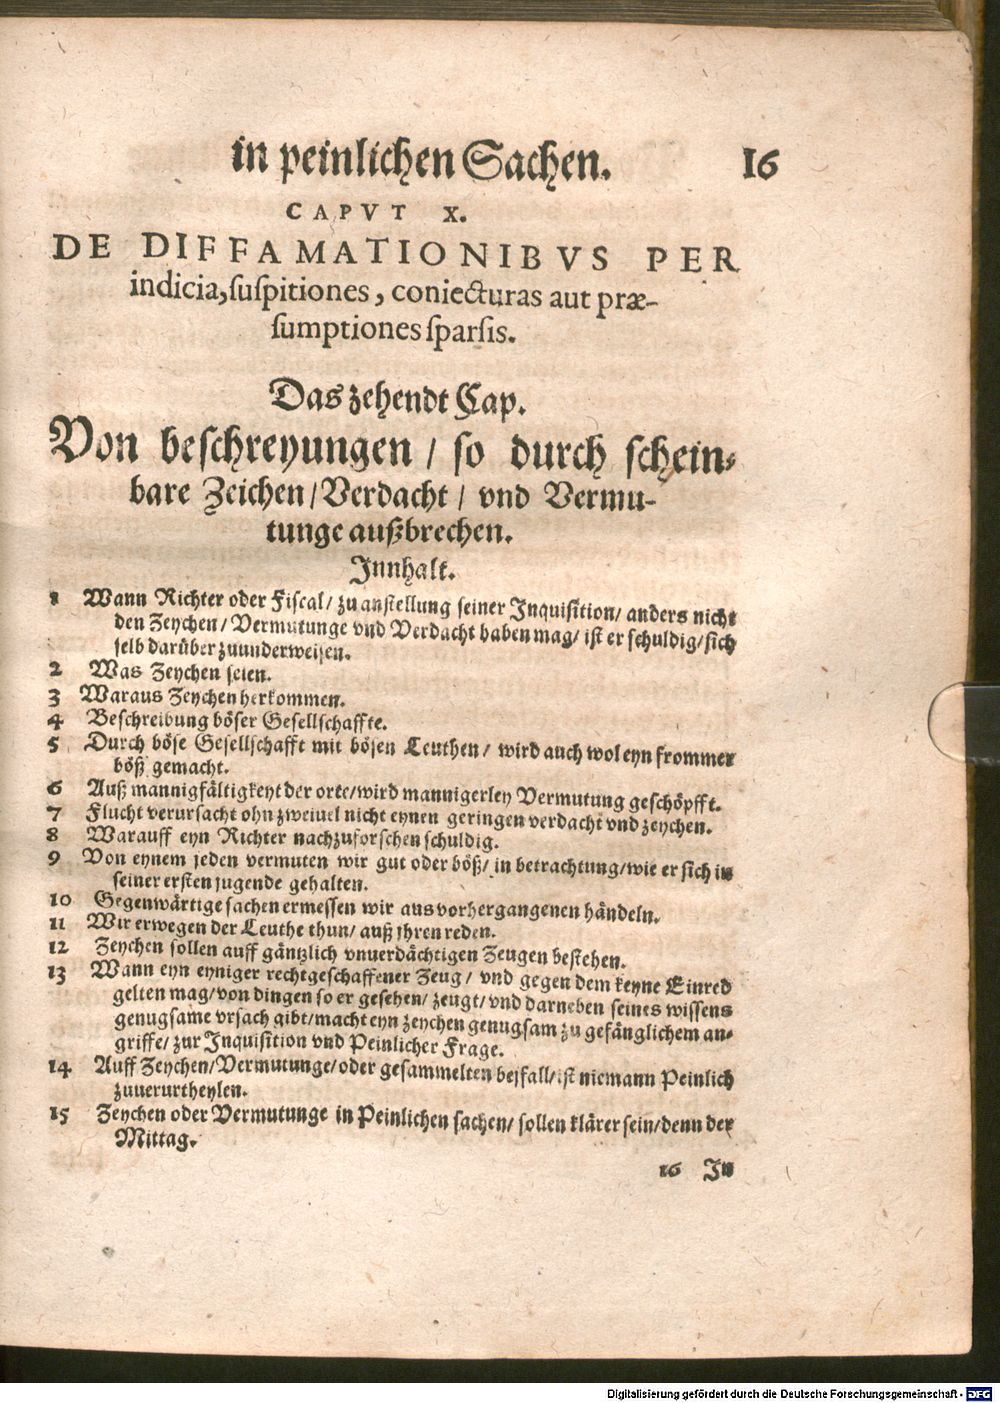 in peinlichen Sachen. 16
CAPVT X.
DE DIFFAMATIONIBVS PER
indicia, suspitiones, coniecturas aut præ-
sumptiones sparsis.
Das zehendt Cap.
Von beschreyungen / so durch schein-
bare Zeichen / Verdacht / vnd Vermu-
tunge außbrechen.
Innhalt.
1 Wann Richter oder Fiscal / zu anstellung seiner Inquisition / anders nicht
den Zeychen / Vermutunge vnd Verdacht haben mag / ist er schuldig / sich
selb darüber zuunderweisen.
2 Was Zeychen seien.
3 Waraus Zeychen herkommen.
4 Beschreibung böser Gesellschaffte.
5 Durch böse Gesellschafft mit bösen Leuthen / wird auch wol eyn frommer
böß gemacht.
6 Auß mannigfältigkeyt der orte / wird mannigerley Vermutung geschöpfft.
7 Flucht verursacht ohn zweiuel nicht eynen geringen verdacht vnd zeychen.
8 Warauff eyn Richter nachzuforschen schuldig.
9 Von eynem jeden vermuten wir gut oder böß / in betrachtung / wie er sich in
seiner ersten jugende gehalten.
10 Gegenwärtige sachen ermessen wir aus vorhergangenen händeln.
11 Wir erwegen der Leuthe thun / auß jhren reden.
12 Zeychen sollen auff gäntzlich vnuerdächtigen Zeugen bestehen.
13 Wann eyn eyniger rechtgeschaffener Zeug / vnd gegen dem keyne Einred
gelten mag / von dingen so er gesehen / zeugt / vnd darneben seines wissens
genugsame vrsach gibt / macht eyn zeychen genugsam zu gefänglichem an-
griffe / zur Inquisition vnd Peinlicher Frage.
14 Auff Zeychen / Vermutunge / oder gesammelten beifall / ist niemann Peinlich
zuuerurtheylen.
15 Zeychen oder Vermutunge in Peinlichen sachen / sollen klärer sein / denn der
Mittag.
16 In
Digitalisierung gefördert durch die Deutsche Forschungsgemeinschaft - DFG